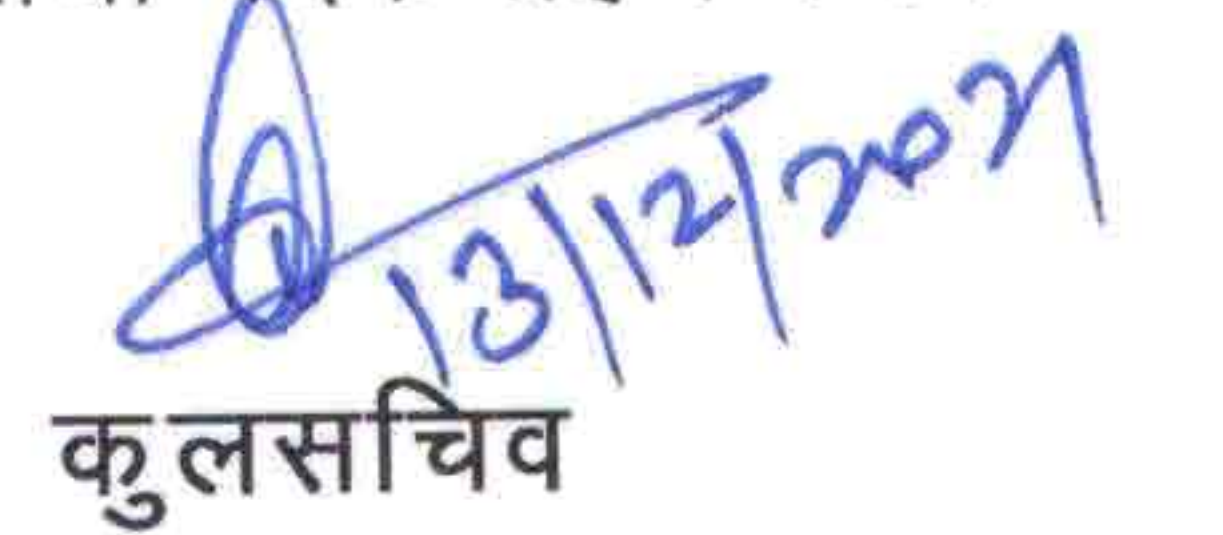 13/12/2021
कुलसचिव